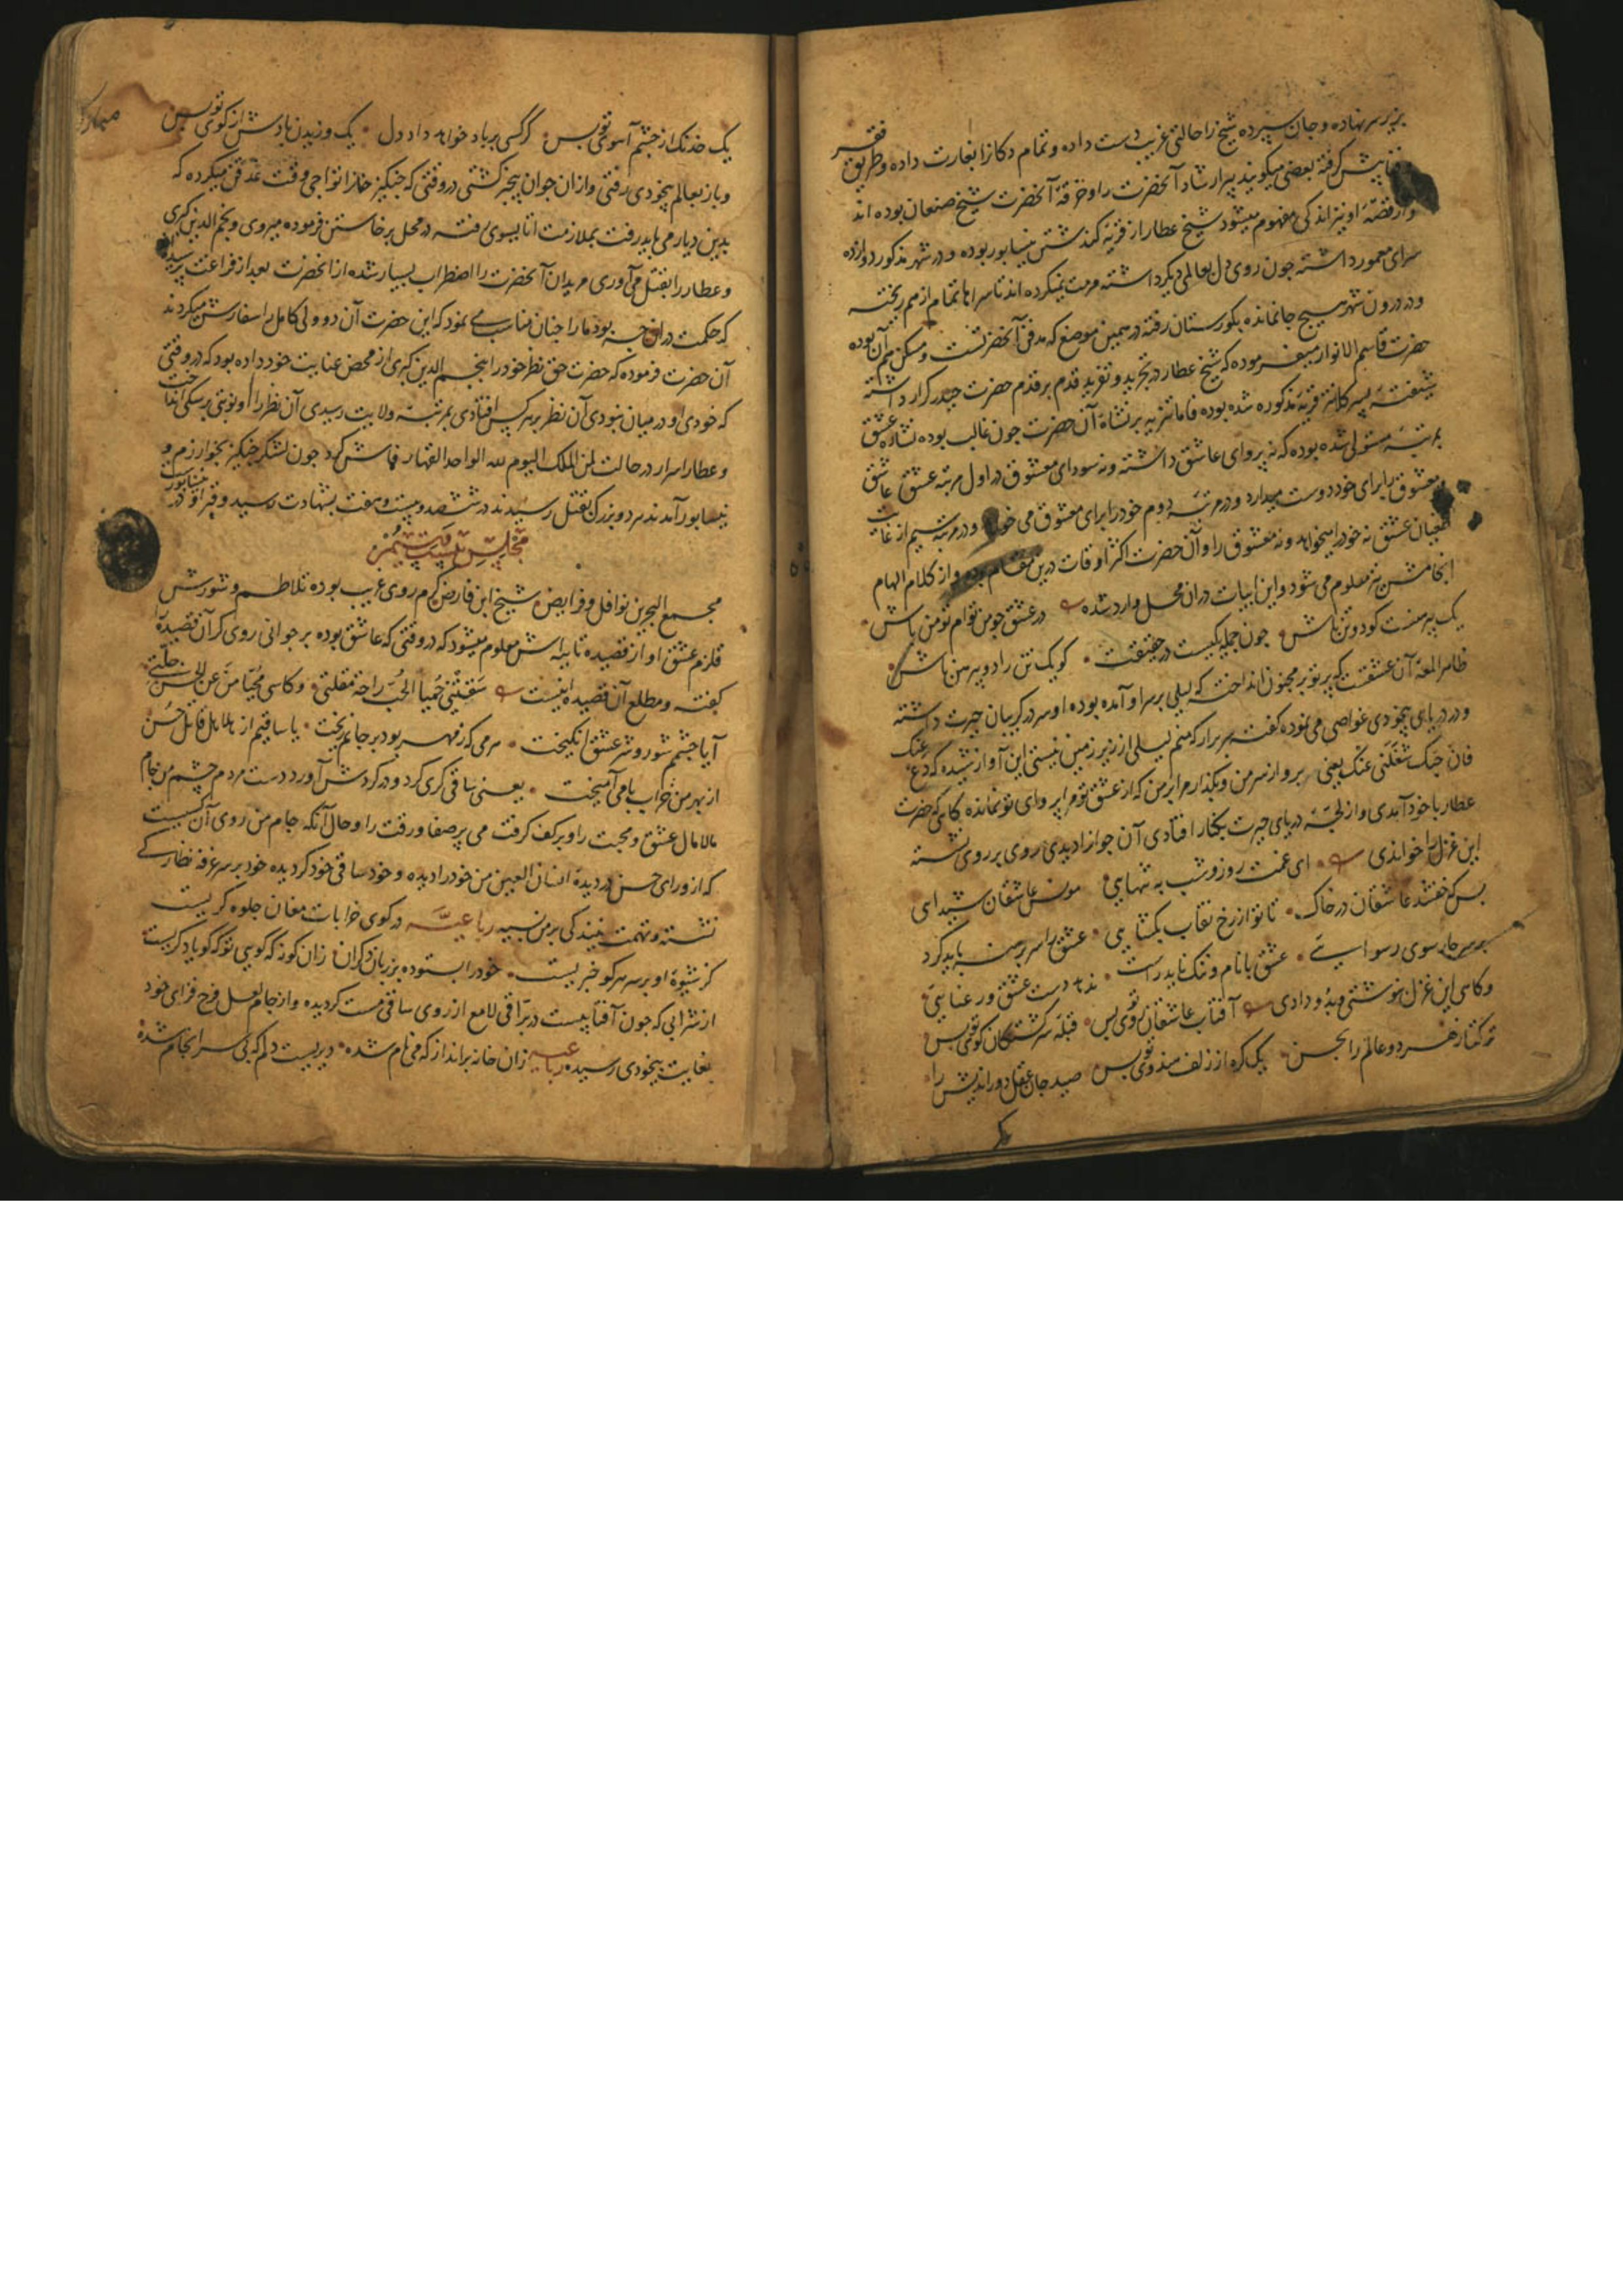 بر زبر سر نهاده و جان سپرده شیخ را حالتی غریب دست داده و تمام دکانرا بغارت داده و طریق فقر
پیش گرفته بعضی میگویند پیر ارشاد آنحضرت را و خرقهٔ آنحضرت شیخ صنعان بوده اند
و از قصّهٔ او نیز اندکی مفهوم میشود شیخ عطار از قریهٔ کندشتن نیسابور بوده و در شهر مذکور دوازده
سرای معمور داشته چون روی دل بعالمی دیگر داشته مرمت نمیکرده اند تا سراها تمام از هم ریخته
و در درون شهر هیچ جا نمانده بگورستان رفته در همین موضع که مدفن آنحضرتست و مسکن هم آن بوده
حضرت قاسم الانوار میفرموده که شیخ عطار در تجرید و تفرید قدم بر قدم حضرت حیدر کرار داشته
شیفتهٔ پسر کلانتر قریهٔ مذکوره شده بوده فاما تنزیه بر نشاة آن حضرت چون غالب بوده نشاهٔ عشق
بمرتبهٔ مستولی شده بوده که نه پروای عاشق داشته و نه سودای معشوق در اول مرتبه عشق عاشق
معشوق را برای خود دوست میدارد و در مرتبهٔ دوم خود را برای معشوق می خواهد و در مرتبه سیم از غایت
طغیان عشق نه خود را میخواهد و نه معشوق را و آن حضرت اکثر اوقات درین مقام بوده و از کلام الهام
انجامش نیز معلوم می شود و این ابیات در ان محل وارد شده در عشق چو من توام تو من باش
یک پیرهنست گو دو تن باش چون جمله یکیست در حقیقت گو یک تن را دو پیرهن باش
ظاهرا لمعهٔ آن عشقست که پرتو بر مجنون انداخته که لیلی بر سر او آمده بوده او سر در گریبان حیرت داشته
و در دریای بیخودی غواصی می نموده گفته سر برار که منم لیلی از زیر زمین نیستی این آواز شنیده که دع عنک
فان حبک شغلنی عنک یعنی برو از سر من و بگذار مرا بر من که از عشق تو مرا پروای تو نمانده گاهی که حضرت
عطار با خود آمدی و از لجّهٔ دریای حیرت بکنار افتادی آن جوانرا دیدی روی بر روی نشسته
این غزل را خواندی ای غمت روز و شب به تنهایی مونس عاشقان شیدایی
بس که خفتند عاشقان در خاک تا تو از رخ نقاب بگشایی عشق را سر برهنه باید کرد
بر سر چار سوی رسوایی عشق با نام و ننگ ناید راست ندهد دست عشق و رعنایی
و گاهی این غزل نوشتی و بدو دادی آفتاب عاشقان روی تو بس قبلهٔ سرگشتگان کوی تو بس
ترکتاز هر دو عالم را بحسن یک گره از زلف هندوی تو بس صید جان عقل دور اندیش را
یک
یک خدنک از چشم آهوی تو بس گر کسی بر باد خواهد داد دل یک وزیدن بادش از کوی تو بس
و باز بعالم بیخودی رفتی و از ان جوان بیخبر گشتی در وقتی که چنگیز خانرا نواجی وقت غدقن میکرده که
بدین دیار می باید رفت بملازمت اتابسوی رفته در محل برخاستن فرموده میروی و نجم الدین کبری
و عطار را بقتل می آوری مریدان آنحضرت را اضطراب بسیار شده از انحضرت بعد از فراغت پرسیده
که حکمت در ان چه بود ما را چنان مناسب می نمود که این حضرت آن دو ولی کامل را سفارش میکردند
آن حضرت فرموده که حضرت حق نظر خود را بنجم الدین کبری از محض عنایت خود داده بود که در وقتی
که خودی او در میان نبودی آن نظر بر هر کس افتادی بمرتبهٔ ولایت رسیدی آن نظر را او نوبتی بر سگی انداخت
و عطار اسرار در حالت لمن الملک الیوم لله الواحد القهار فاش کرد چون لشگر چنگیز بخوارزم و
نیسابور آمدند هر دو بزرک بقتل رسیدند در ششصد و بیست و هفت بشهادت رسید و قبر او در نیسابورست
مجلس بیست
مجمع البحرین نوافل و فرایض شیخ ابن فارض گرم روی عجیب بوده تلاطم و شورش
قلزم عشق او از قصیدهٔ تاییه اش معلوم میشود که در وقتی که عاشق بوده بر جوانی روی گران قصیده را
گفته و مطلع آن قصیده اینست سقتنی حمیا الحب راحة مقلتی و کاسی محیا من عن الحسن جلّت
آیا چشمم شور و شر عشق انگیخت هر می که ز مهر بود بر جانم ریخت یا ساقیم از هلاهل قاتل حسن
از بهر من خراب با می آمیخت یعنی ساقی گری کرد و در گردش آورد دست مردم چشم من جام
مالامال عشق و محبت را و بر کف گرفت می پر صفا و رقت را و حال آنکه جام من روی آن کسیست
که از ورای حسن در دیدهٔ انسان العین من خود را دیده و خود ساقی خود گردیده خود بر سر غرفه نظارگی
نشسته و تهمت بینندگی بر من بسته رباعیّه در کوی خرابات مغان جلوه گریست
کز شیوهٔ او بر سر هر کو خبریست خود را بستوده بر زبان دگران زان گونه که گویی تو که گویا دگریست
از شرابی که چون آفتابیست در برّاقی لامع از روی ساقی مست گردیده و از جام لعل فرح فزای خود
بغایت بیخودی رسیده رباعیه زان خانه برانداز که می نام شده دیریست دلم که بی سرانجام شده